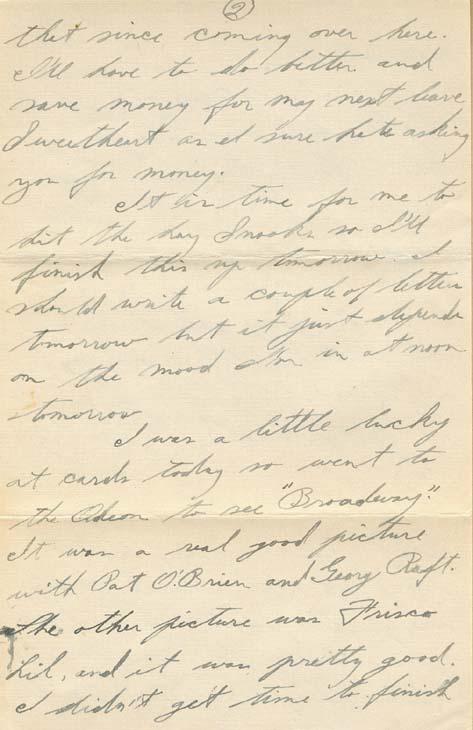 2
that since coming over here.
I'll have to do better and
save money for my next leave
Sweetheart as I sure hate asking
you for money.
It is time for me to
hit the hay Snooks so I'll
finish this up tomorrow. I
should write a couple of letters
tomorrow but it just depends
on the mood I'm in at noon
tomorrow
I was a little lucky
at cards today so went to
the Odeon to see "Broadway."
It was a real good picture
with Pat O'Brien and Georg Raft.
The other picture was Frisco
Lil, and it was pretty good.
I didn't get time to finish